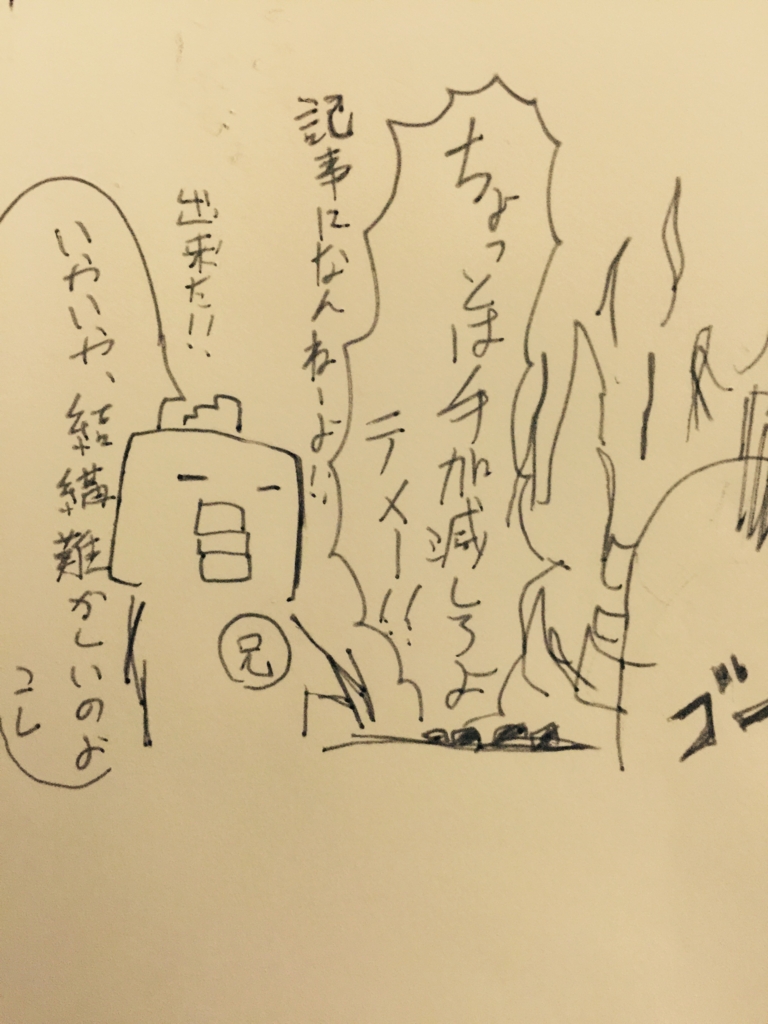 ゴー
ちょっとは手加減しろよ
テメー!!
記事になんねーよ!!
出来た!!
兄
いやいや、結構難かしいのよ
コレ